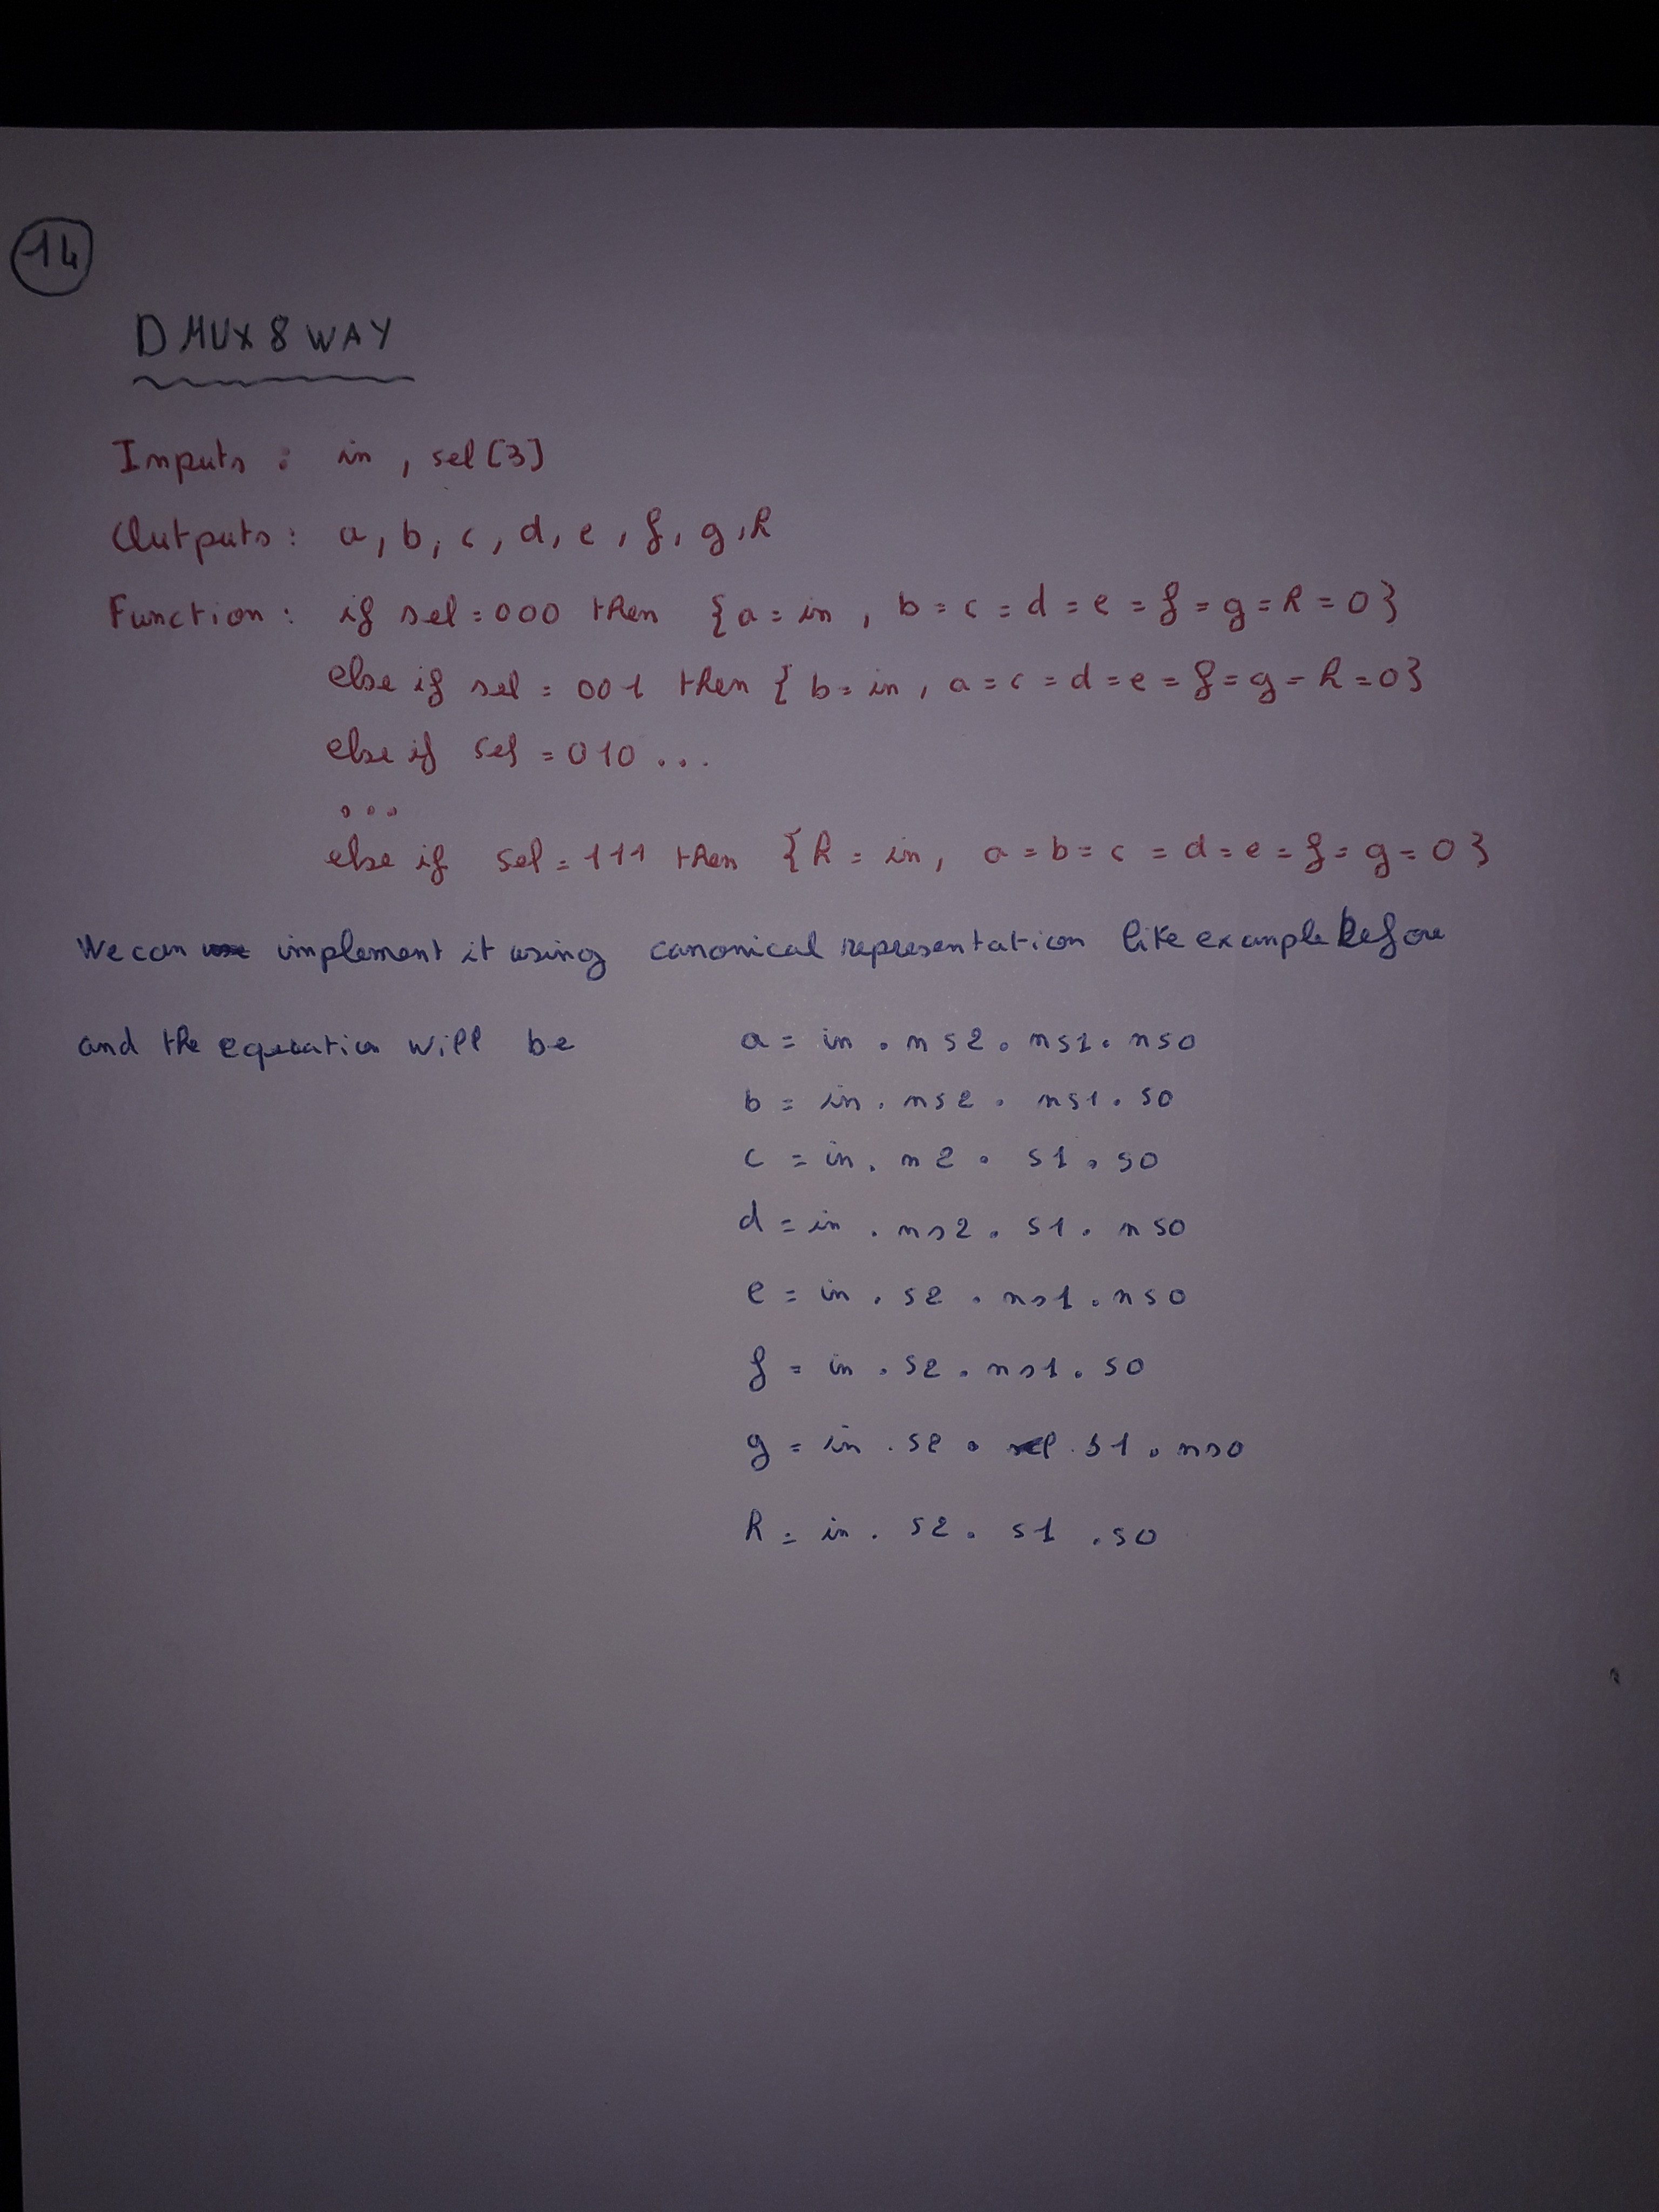 14
DMUX8WAY
Inputs : in , sel[3]
Outputs : a, b, c, d, e, f, g, h
Function : if sel = 000 then {a = in , b = c = d = e = f = g = h = 0}
else if sel = 001 then { b = in , a = c = d = e = f = g = h = 0}
else if sel = 010 ...
...
else if sel = 111 then {h = in, a = b = c = d = e = f = g = 0}
We can implement it using canonical representation like example before
and the equation will be a = in . ns2 . ns1 . ns0
b = in . ns2 . ns1 . s0
c = in . n2 . s1 . s0
d = in . ns2 . s1 . ns0
e = in . s2 . ns1 . ns0
f = in . s2 . ns1 . s0
g = in . s2 . s1 . ns0
h = in . s2 . s1 . s0